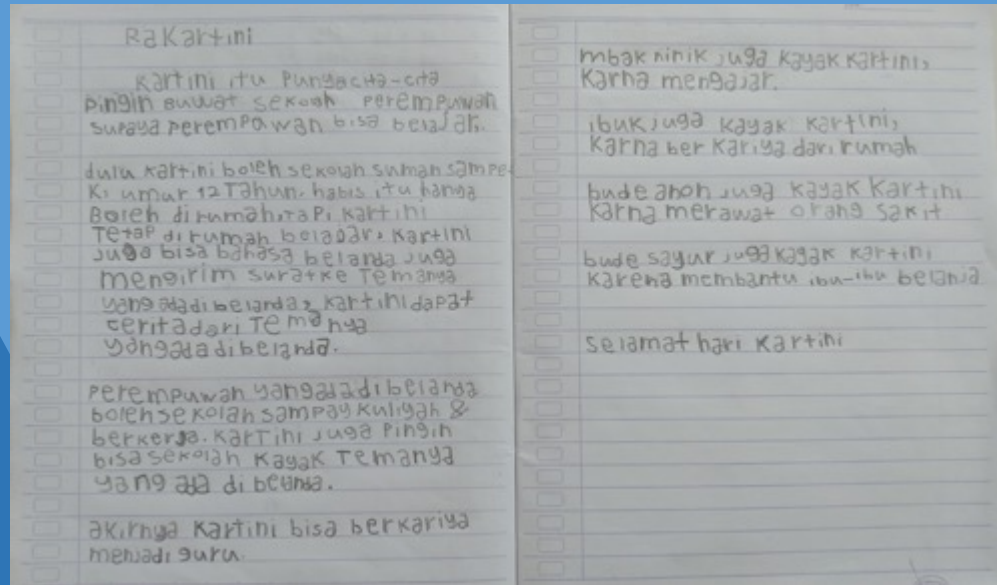 Ra Kartini
Kartini itu Punya cita-cita
pingin buwat sekolah perempuwan
supaya perempawan bisa belajar.
dulu Kartini boleh sekolah suman sampe
Ki umur 12 Tahun. habis itu hanya
Boleh di rumah, tapi Kartini
Tetap di rumah belajar, Kartini
Juga bisa bahasa belanda juga
mengirim surat ke Temanya
yang ada di belanda, Kartini dapat
cerita dari Temanya
yang ada di belanda.
perempuwan yang ada di belanda
boleh sekolah sampay kuliyah &
berkerja. Kartini juga pingin
bisa sekolah kayak Temanya
yang ada di belanda.
akirnya Kartini bisa berkariya
menjadi guru.
mbak ninik juga kayak Kartini,
Karna mengajar.
ibuk juga kayak Kartini,
Karna ber kariya dari rumah
bude anon juga kayak Kartini
Karna merawat orang sakit
bude sayur juga kayak Kartini
Karena membantu ibu-ibu belanja
selamat hari Kartini